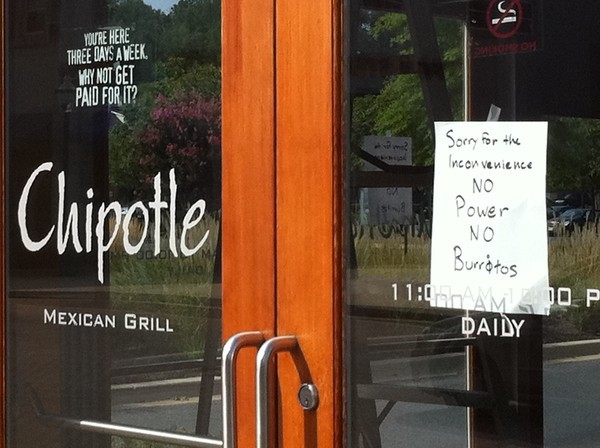 YOU'RE HERE
THREE DAYS A WEEK,
WHY NOT GET
PAID FOR IT?
Chipotle
MEXICAN GRILL
NO SMOKING
Sorry for the
Inconvenience
NO
Power
NO
Burritos
DAILY